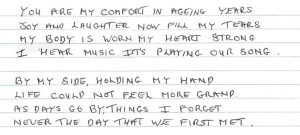 YOU ARE MY COMFORT IN AGEING YEARS
JOY AND LAUGHTER NOW FILL MY TEARS
MY BODY IS WORN MY HEART STRONG
I HEAR MUSIC IT'S PLAYING OUR SONG.
BY MY SIDE, HOLDING MY HAND
LIFE COULD NOT FEEL MORE GRAND.
AS DAYS GO BY, THINGS I FORGET
NEVER THE DAY THAT WE FIRST MET.